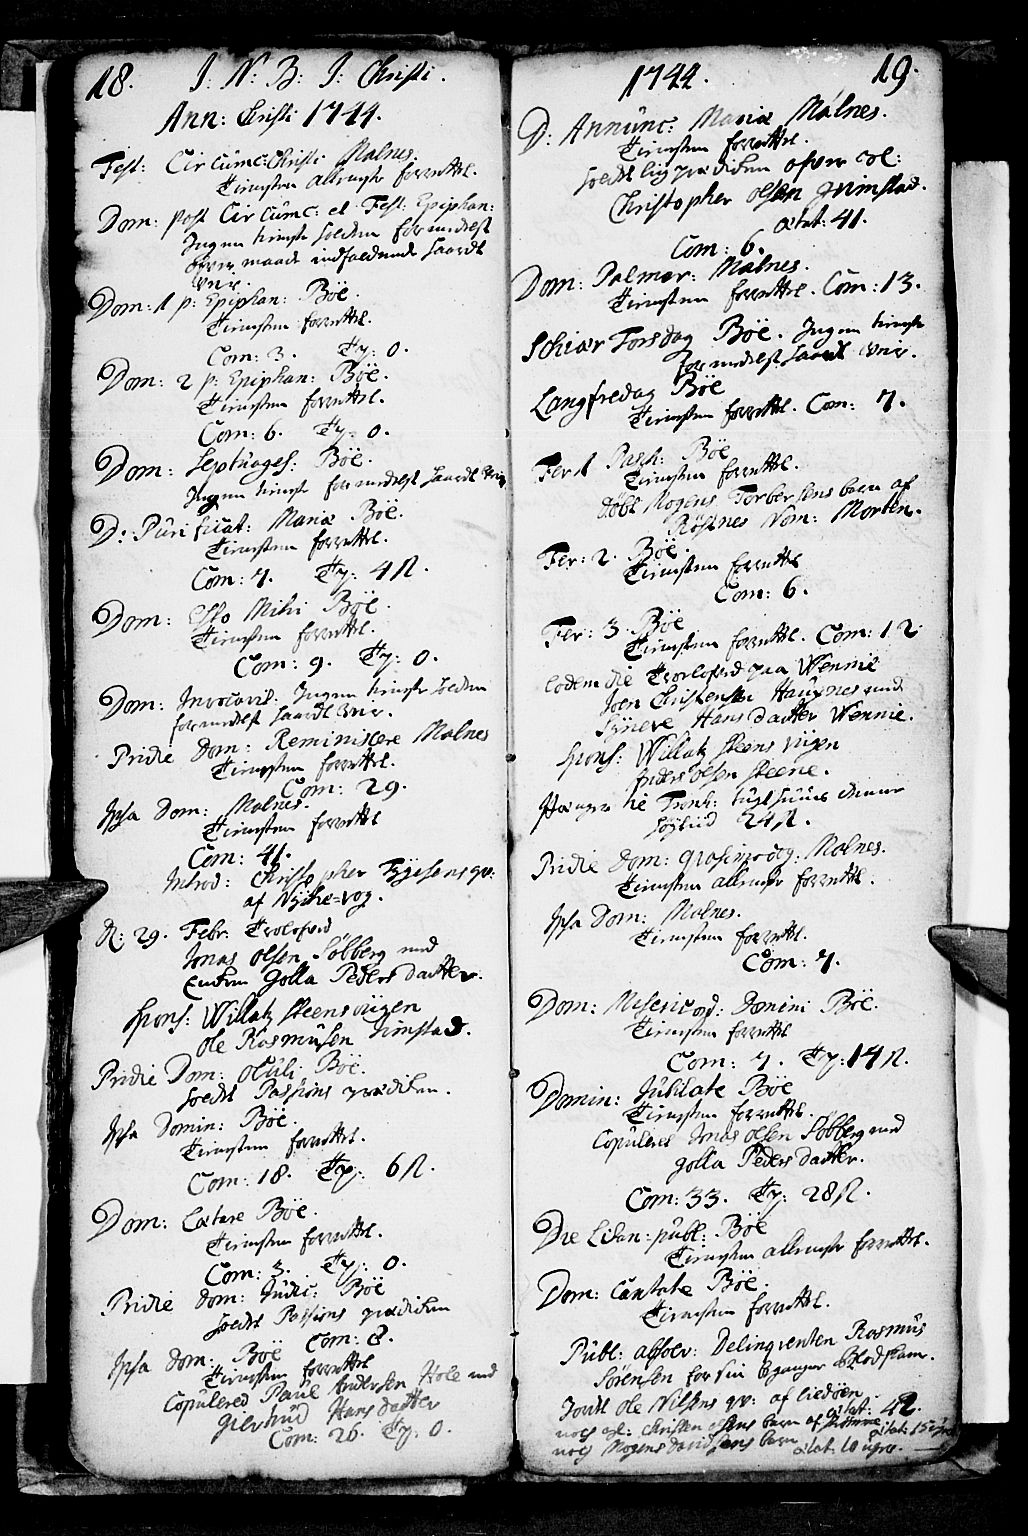 18. I: N: B: I: Christi.
Ann: Christi 1744.
Fest: Circumc: Christi Malnes.
Tienesten allene forrettet.
Dom: post Circumc: et Fest: Epiphan:
Ingen tieneste holden formedelst
over maade indfaldende haardt
Veir.
Dom: 1 p: Epiphan: Böe.
Tienesten forrettet.
Com: 3. Ty: 0.
Dom: 2 p: Epiphan: Böe.
Tienesten forrettet.
Com: 6. Ty: 0.
Dom: Septuages: Böe.
Ingen tieneste formedelst haardt Veir
D: Purificat: Mariæ Böe.
Tienesten forrettet.
Com: 7. Ty: 4
Dom: Esto Mihi Böe.
Tienesten forrettet.
Com: 9. Ty: 0.
Dom: Invocavit. Ingen tieneste holden
formedelst haardt Veir.
Pridie Dom: Reminiscere Malnes
Tienesten forrettet.
Com: 29.
Ipsa Dom: Malnes.
Tienesten forrettet
Com: 41.
Introd: Christopher
af
D: 29. Febr. Trolofved
Jonas Olsen Söbberg med
Golla Peders datter.
Spons: Willatz Steensviigen
Ole Rasmusen
Pridie Dom: Oculi Böe.
holdt Passions prædiken.
Ipsa Domin: Böe.
Tienesten forrettet.
Com: 18. Ty: 6
Dom: Lætare Böe.
Tienesten forrettet.
Com: 3. Ty: 0.
Pridie Dom: Judic: Böe
holdt Passions prædiken
Com: 8.
Ipsa Dom: Böe
Tienesten forrettet
Copulered Paul Andersen Hole med
Giertrud Hans datter
Com: 26. Ty: 0.
1744. 19.
D: Annunc: Mariæ Malnes.
Tienesten forrettet.
holdt liigprædiken ofver
Christopher Olsen Grimstad.
ætat: 41.
Com: 6.
Dom: Palmar: Malnes.
Tienesten forrettet. Com: 13.
Schiær Torsdag Böe. Ingen tieneste
formedelst haardt Veir.
Langfredag Böe
Tienesten forrettet. Com: 7.
Fer: 1 Pasch: Böe
Tienesten forrettet.
döbt Mogens Torbersens barn af
Röstnes Nom: Morten.
Fer: 2. Böe.
Tienesten forrettet
Com: 6.
Fer: 3. Böe
Tienesten forrettet. Com: 12
Eodem die Trolofved paa Wennie
Joen Christensen med
Hans datter Wennie.
Spons: Willatz Steensviigen
Anders Olsen Steene.
24
Pridie Dom: Qvasimodog: Malnes.
Tienesten allene forrettet.
Ipsa Dom: Malnes.
Tienesten forrettet.
Com: 7.
Dom: Misericord: Domini Böe.
Tienesten forrettet
Com: 7. Ty: 14
Domin: Jubilate Böe
Tienesten forrettet.
Copulered Jonas Olsen Söbberg med
Golla Peders datter.
Com: 33. Ty: 28
Die Litan: publ: Böe
Tienesten allene forrettet.
Dom: Cantate Böe.
Tienesten forrettet.
Publ: absolv: Delinqventen Rasmus
Sörensen for sin begangne Blodskam.
Jordet Ole Nilsens qv: af Liedöen ætat: 42.
Christen Olsens barn af ætat: 15
Mogens Davidsens barn ætat: 10